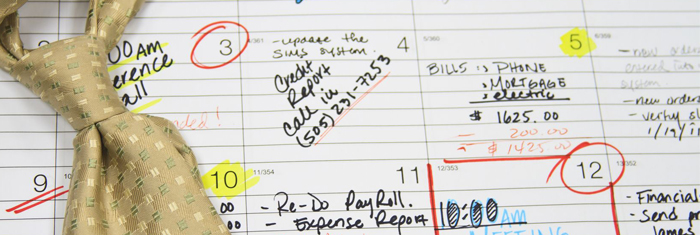 3
:00AM
erence
all
4/361
- update the
SIMS system.
Credit
Report
call in
(505) 231-7253
4
5/360
BILLS :> PHONE
> MORTGAGE
> electric
$ 1625.00
- 200.00
$ 1425.00
5
6/359
- new orders
system.
- new order
- verify
1/19/1
9
10
00
00
11/354
- Re-Do Payroll.
- Expense Report
11
12/353
10:00
AM
MEETING
12
13/352
- Financial
- Send pr
James